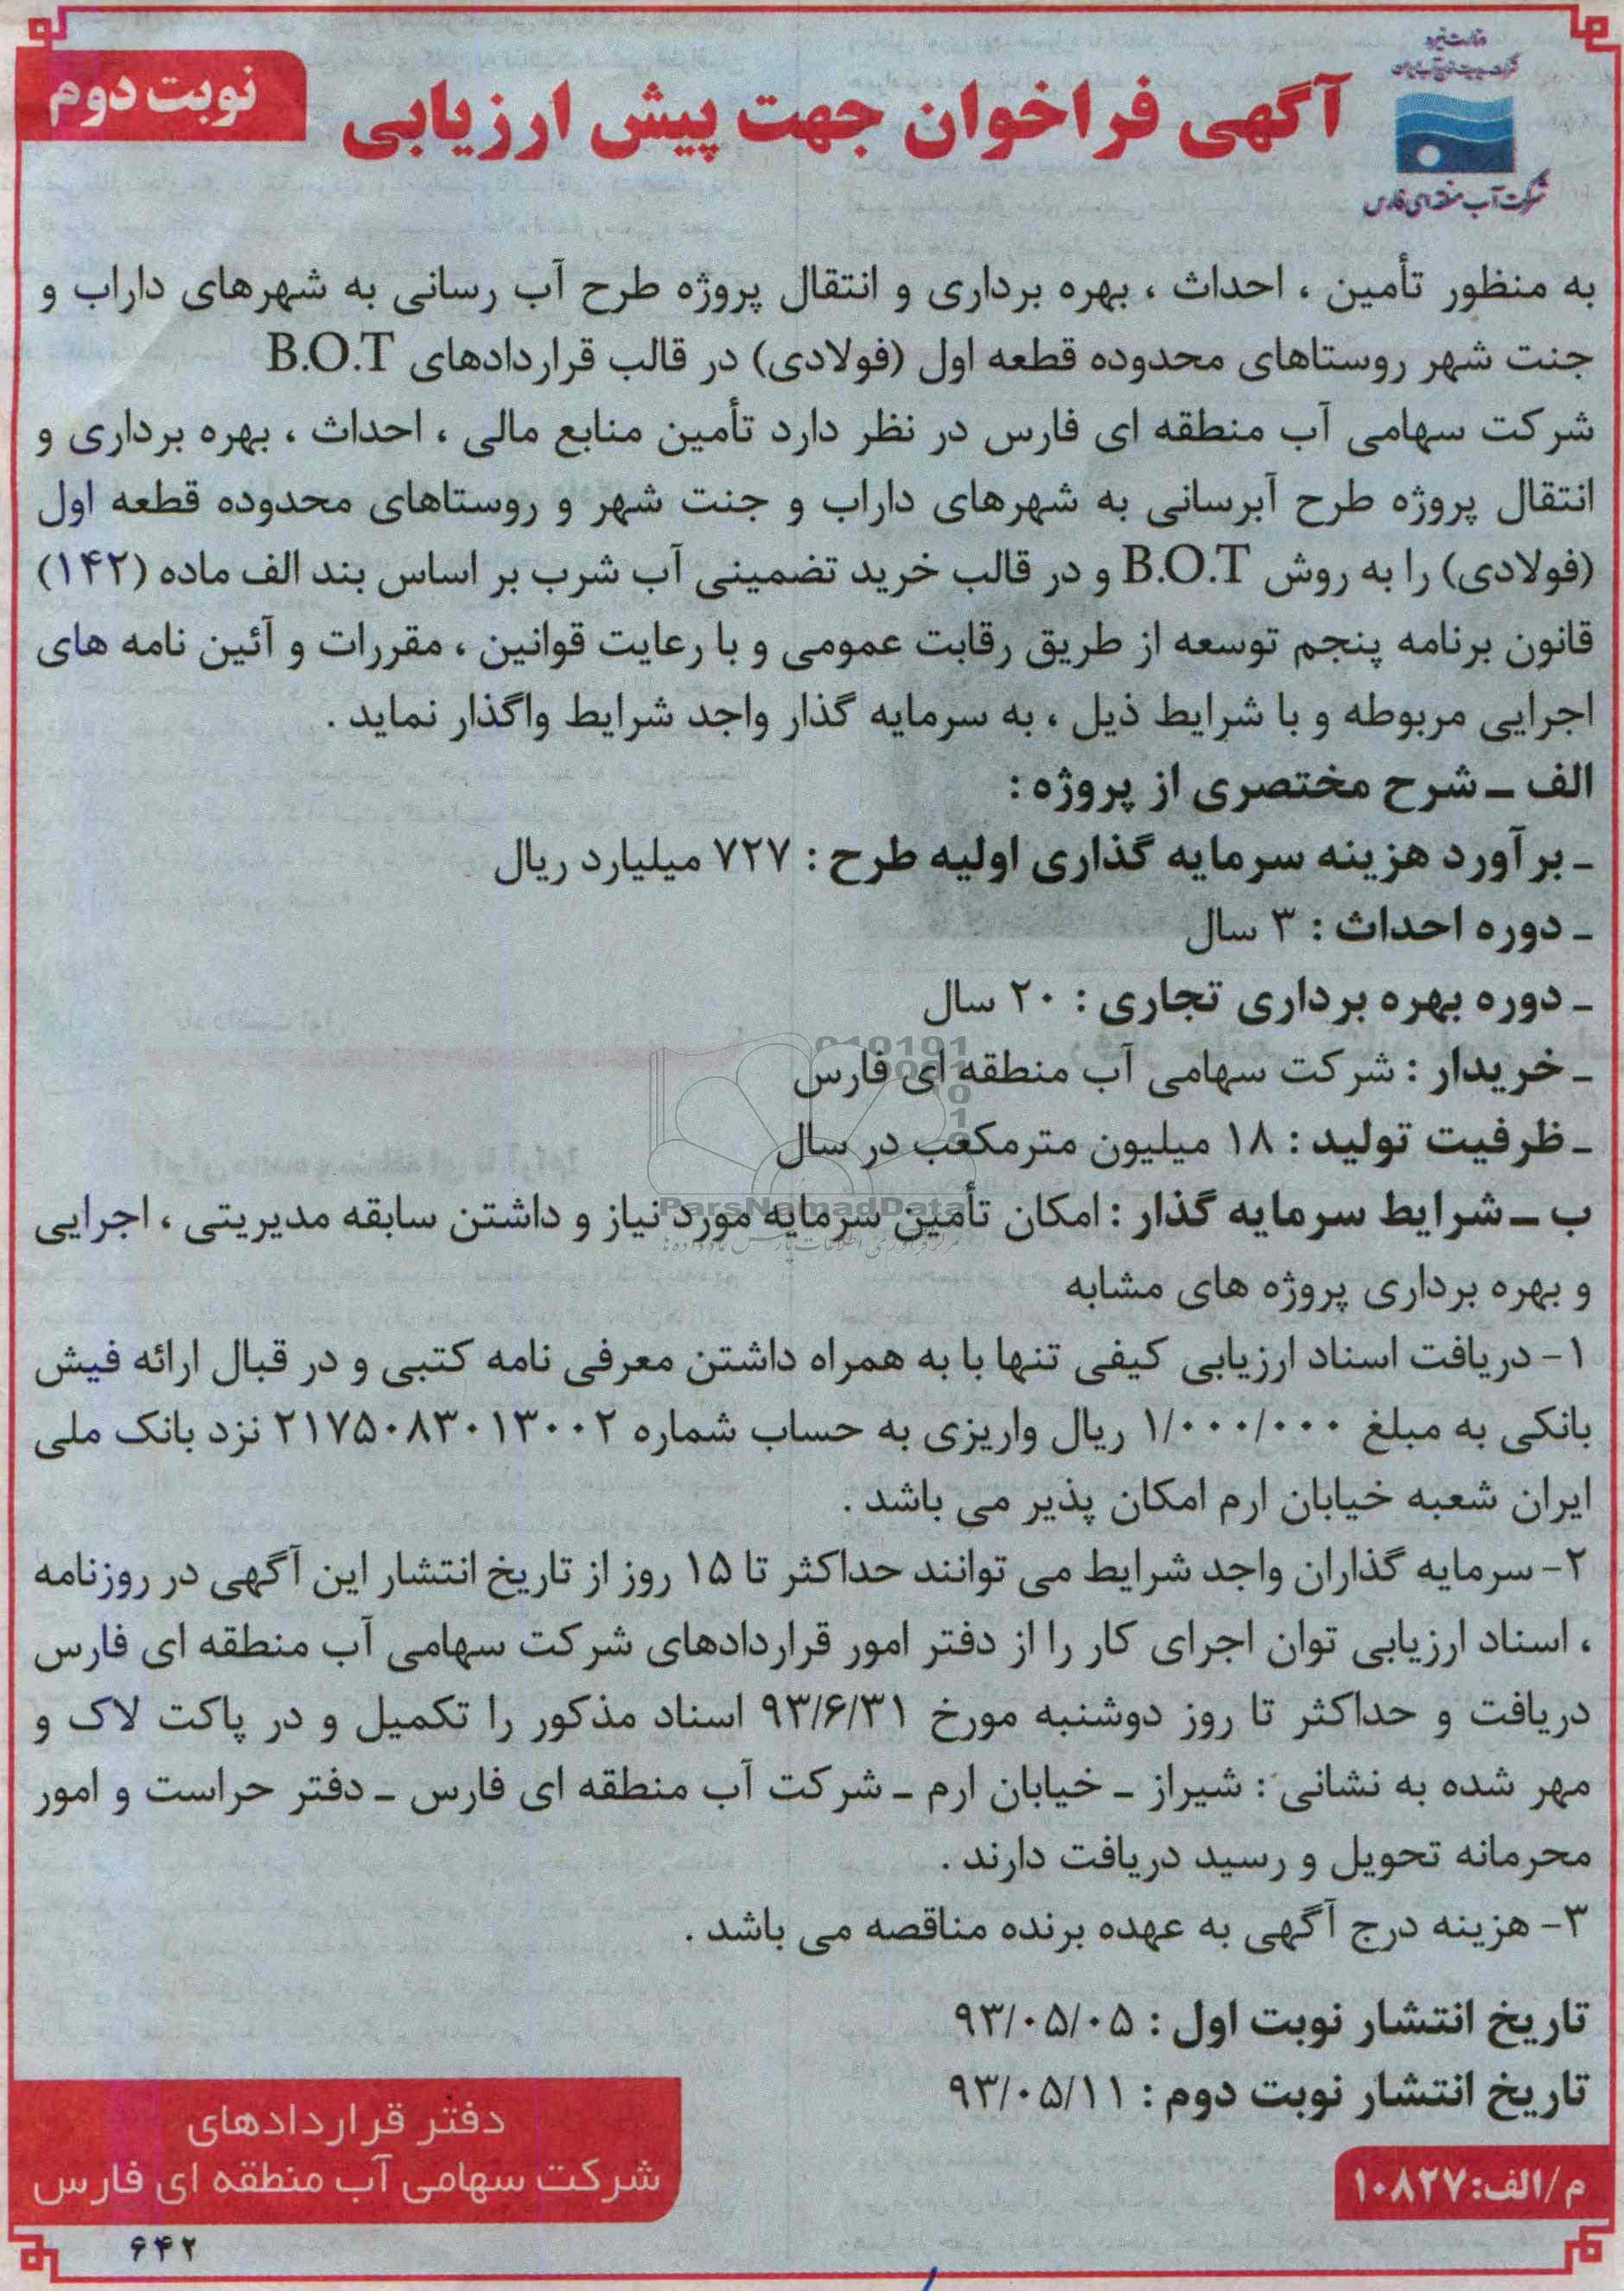 وزارت نیرو
شرکت آب منطقه ای فارس
آگهی فراخوان جهت پیش ارزیابی
نوبت دوم
به منظور تأمین ، احداث ، بهره برداری و انتقال پروژه طرح آب رسانی به شهرهای داراب و
جنت شهر روستاهای محدوده قطعه اول (فولادی) در قالب قراردادهای B.O.T
شرکت سهامی آب منطقه ای فارس در نظر دارد تأمین منابع مالی ، احداث ، بهره برداری و
انتقال پروژه طرح آبرسانی به شهرهای داراب و جنت شهر و روستاهای محدوده قطعه اول
(فولادی) را به روش B.O.T و در قالب خرید تضمینی آب شرب بر اساس بند الف ماده (۱۴۲)
قانون برنامه پنجم توسعه از طریق رقابت عمومی و با رعایت قوانین ، مقررات و آئین نامه های
اجرایی مربوطه و با شرایط ذیل ، به سرمایه گذار واجد شرایط واگذار نماید .
الف ـ شرح مختصری از پروژه :
ـ برآورد هزینه سرمایه گذاری اولیه طرح : ۷۲۷ میلیارد ریال
ـ دوره احداث : ۳ سال
ـ دوره بهره برداری تجاری : ۲۰ سال
ـ خریدار : شرکت سهامی آب منطقه ای فارس
ـ ظرفیت تولید : ۱۸ میلیون مترمکعب در سال
ParsNamadData
ب ـ شرایط سرمایه گذار : امکان تأمین سرمایه مورد نیاز و داشتن سابقه مدیریتی ، اجرایی
و بهره برداری پروژه های مشابه
۱- دریافت اسناد ارزیابی کیفی تنها با به همراه داشتن معرفی نامه کتبی و در قبال ارائه فیش
بانکی به مبلغ ۱/۰۰۰/۰۰۰ ریال واریزی به حساب شماره ۲۱۷۵۰۸۳۰۱۳۰۰۲ نزد بانک ملی
ایران شعبه خیابان ارم امکان پذیر می باشد .
۲- سرمایه گذاران واجد شرایط می توانند حداکثر تا ۱۵ روز از تاریخ انتشار این آگهی در روزنامه
، اسناد ارزیابی توان اجرای کار را از دفتر امور قراردادهای شرکت سهامی آب منطقه ای فارس
دریافت و حداکثر تا روز دوشنبه مورخ ۹۳/۶/۳۱ اسناد مذکور را تکمیل و در پاکت لاک و
مهر شده به نشانی : شیراز ـ خیابان ارم ـ شرکت آب منطقه ای فارس ـ دفتر حراست و امور
محرمانه تحویل و رسید دریافت دارند .
۳- هزینه درج آگهی به عهده برنده مناقصه می باشد .
تاریخ انتشار نوبت اول : ۹۳/۰۵/۰۵
تاریخ انتشار نوبت دوم : ۹۳/۰۵/۱۱
م/الف:۱۰۸۲۷
دفتر قراردادهای
شرکت سهامی آب منطقه ای فارس
۶۴۲